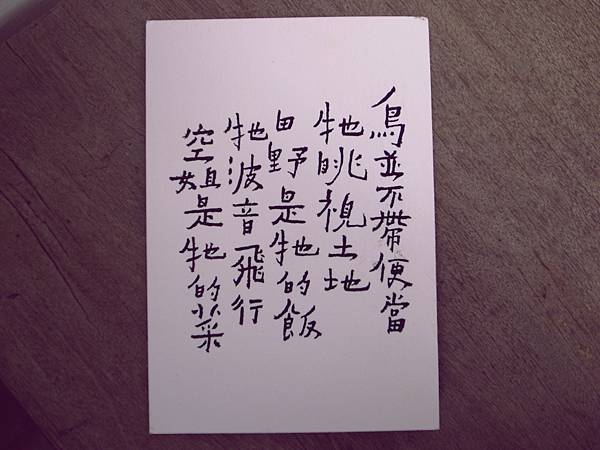 鳥並不帶便當
牠眺視土地
田野是牠的飯
牠波音飛行
空姐是牠的菜